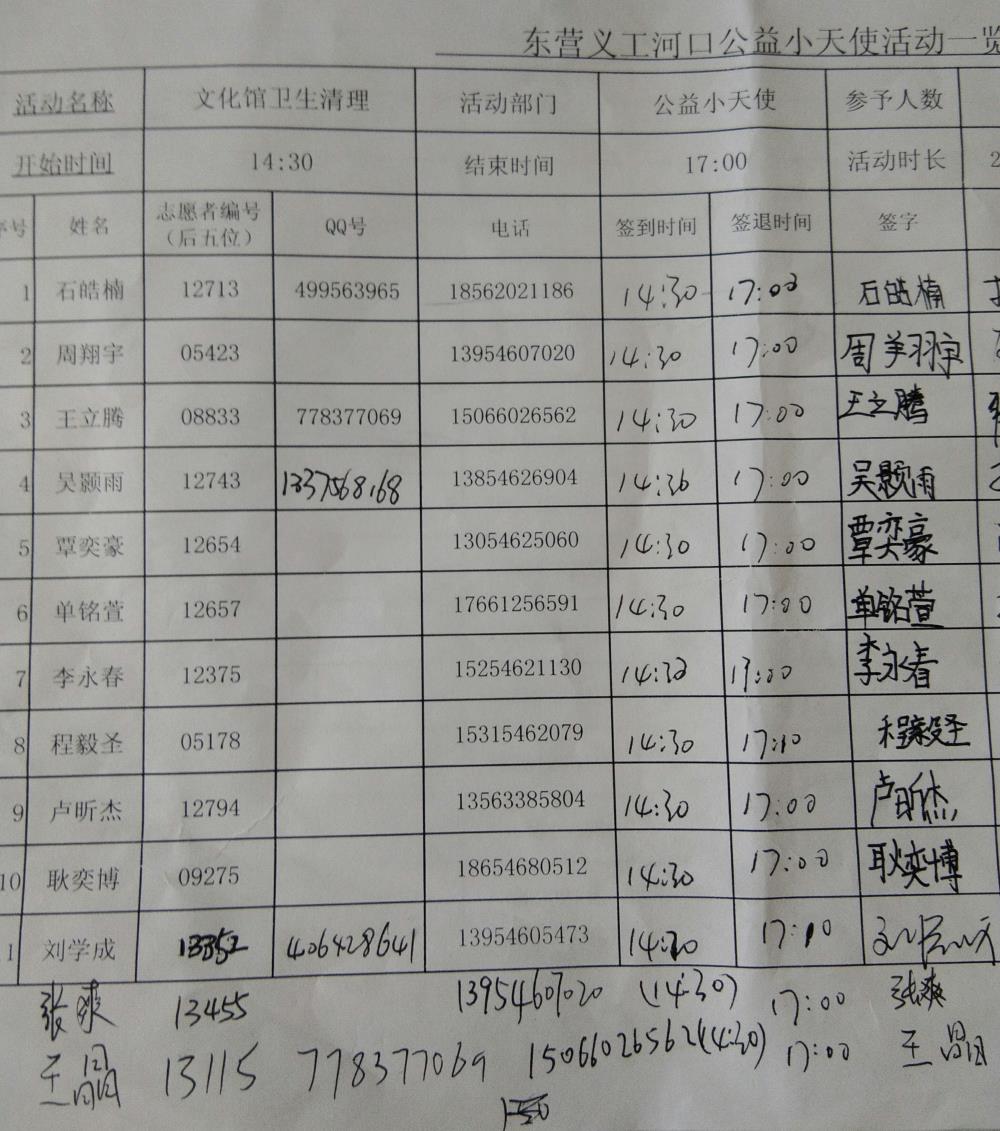 东营义工河口公益小天使活动一览
活动名称 文化馆卫生清理 活动部门 公益小天使 参予人数
开始时间 14:30 结束时间 17:00 活动时长 2
序号 姓名 志愿者编号（后五位） QQ号 电话 签到时间 签退时间 签字
1 石皓楠 12713 499563965 18562021186 14:30 17:00 石皓楠
2 周翔宇 05423 13954607020 14:30 17:00 周翔宇
3 王立腾 08833 778377069 15066026562 14:30 17:00 王立腾
4 吴颢雨 12743 1337568168 13854626904 14:36 17:00 吴颢雨
5 覃奕豪 12654 13054625060 14:30 17:00 覃奕豪
6 单铭萱 12657 17661256591 14:30 17:00 单铭萱
7 李永春 12375 15254621130 14:30 17:00 李永春
8 程毅圣 05178 15315462079 14:30 17:10 程毅圣
9 卢昕杰 12794 13563385804 14:30 17:00 卢昕杰
10 耿奕博 09275 18654680512 14:30 17:00 耿奕博
11 刘学成 13352 406428641 13954605473 14:30 17:10
张爽 13455 13954607020 (14:30) 17:00 张爽
王晶 13115 778377069 15066026562 (14:30) 17:00 王晶